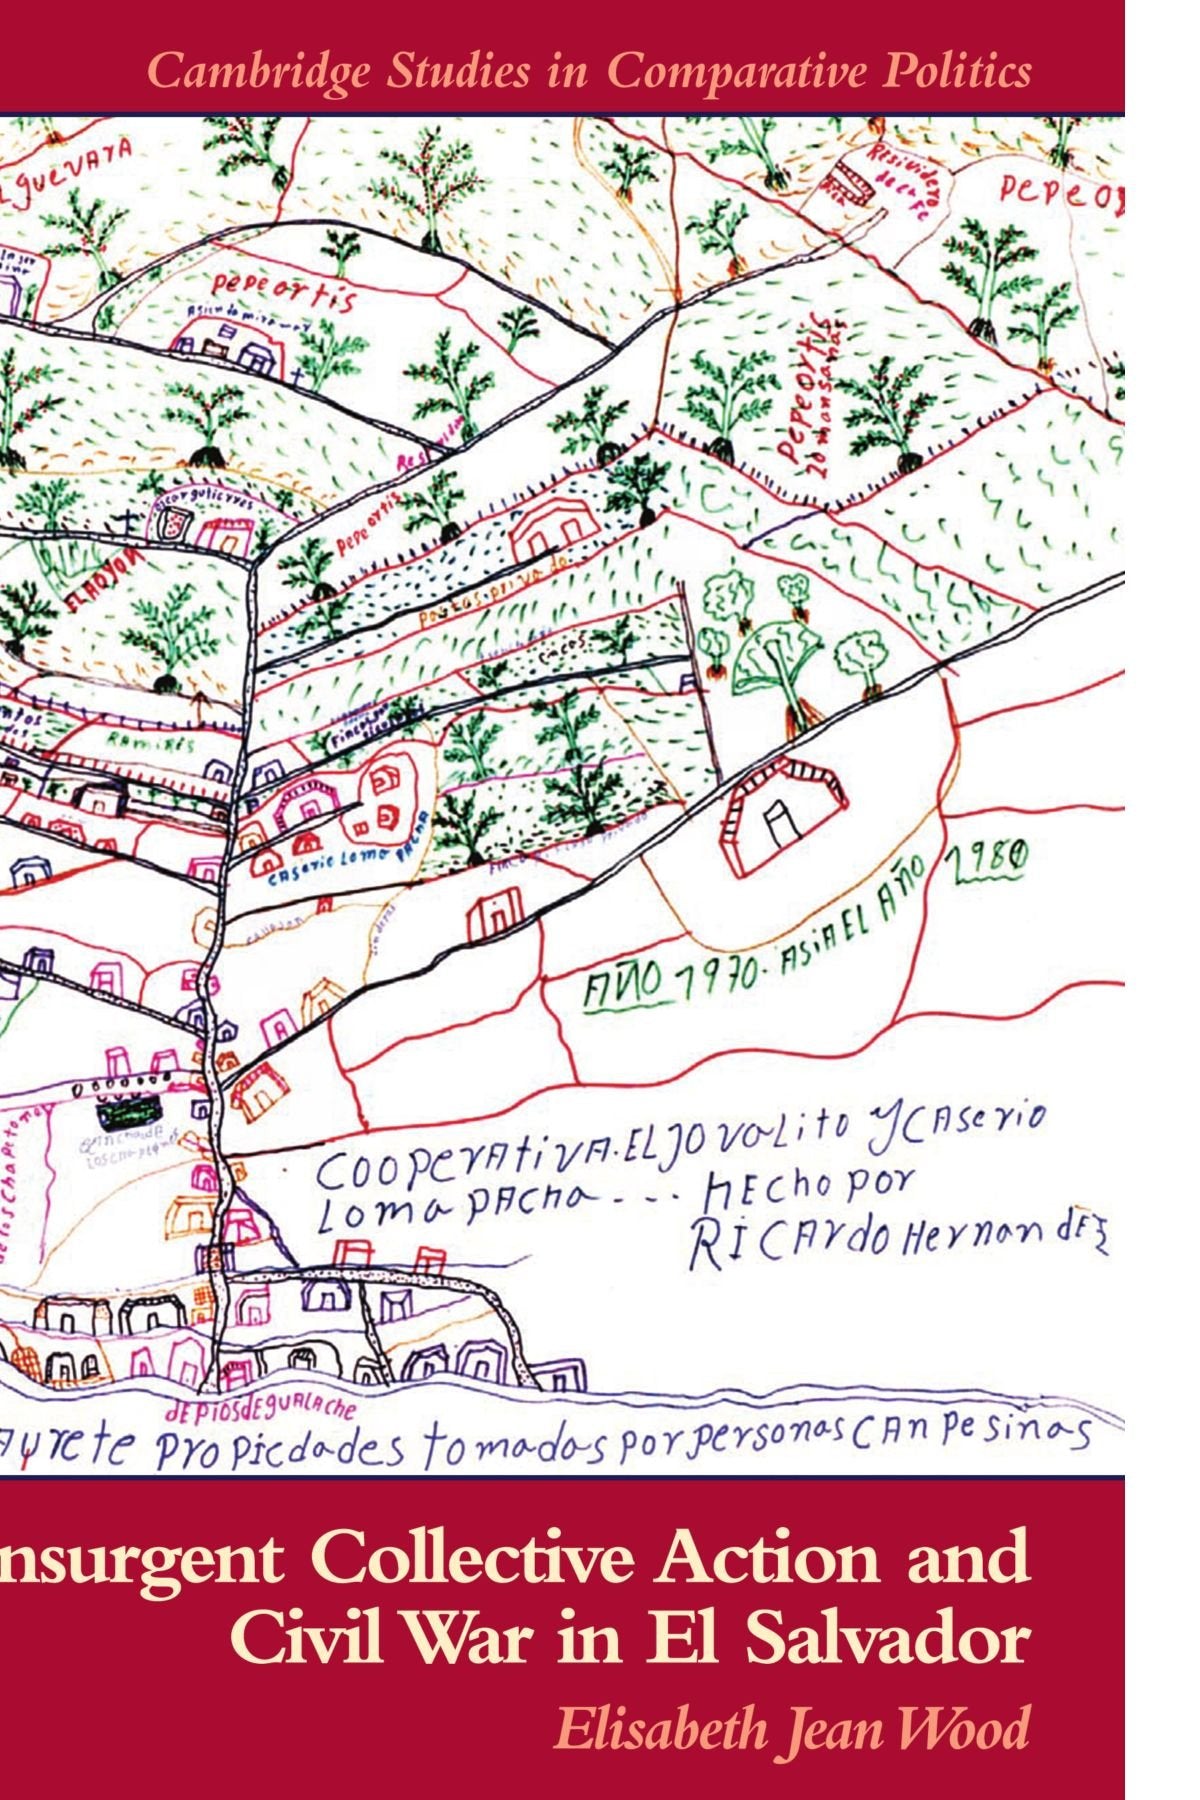 Cambridge Studies in Comparative Politics
guevara
Resividero
de cafe
pepeor
pepeortis
pepeortis
20 mansanas
pepeortis
oscar gutierres
ELHOYON
pastos privado
cacos
RAMIRES
CASERIO LOMA PACHA
callejon
AÑO 1970. ASIA EL AÑO 1980
COOPERATIVA. EL JOVALITO Y CASERIO
LOMA PACHA - - - HECHO POR
RICARDO HERNANDEZ
de los chapetones
dEPIOSdEGUALACHE
AYRETE PROPIEDADES TOMADAS POR PERSONAS CANPESINAS
nsurgent Collective Action and
Civil War in El Salvador
Elisabeth Jean Wood